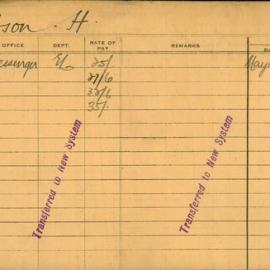 ison H.
OFFICE DEPT. RATE OF PAY REMARKS DA
essenger 25/ May
27/6
32/6
35/
Transferred to New System
Transferred to New System